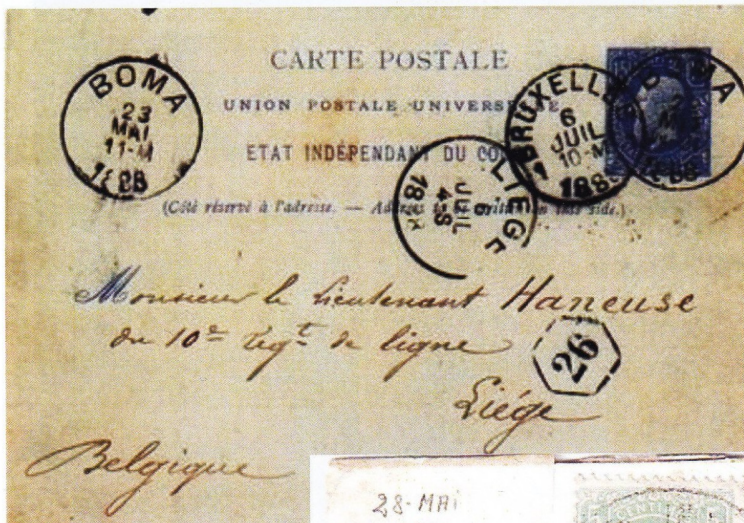 CARTE POSTALE
UNION POSTALE UNIVERSELLE
ETAT INDÉPENDANT DU CO
(Côté réservé à l'adresse. — this side.)
BOMA
23
MAI
11-M
1888
BRUXELLES
6
JUIL
10-M
188
1
BOMA
LIEGE
6
JUIL
4-S
18
Monsieur le Lieutenant Haneuse
du 10e regt de ligne
26
Liége
Belgique
28-MAI
CENTI